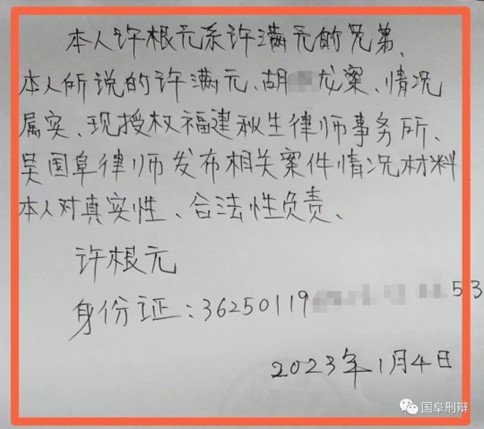 本人许根元系许满元的兄弟、
本人所说的许满元、胡 龙案、情况
属实、现授权福建秋生律师事务所、
吴国阜律师发布相关案件情况材料
本人对真实性、合法性负责、
许根元
身份证:36250119 53
2023年1月4日
国阜刑辩